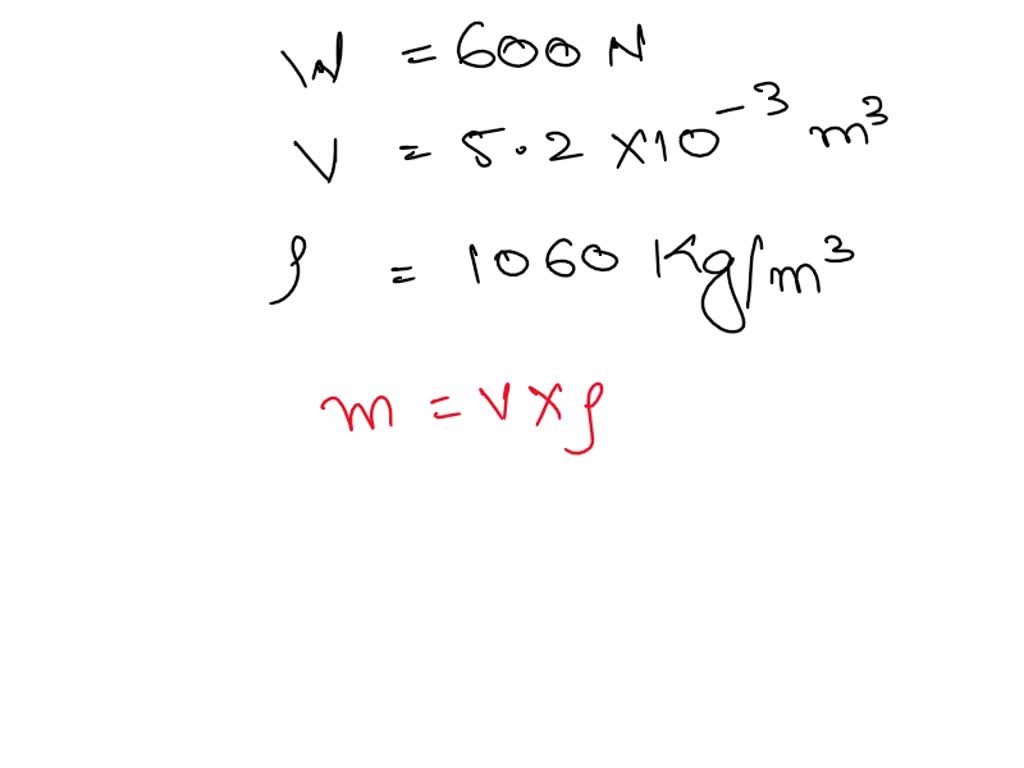 W = 600 N
V = 5.2 × 10⁻³ m³
ρ = 1060 Kg/m³
m = V × ρ